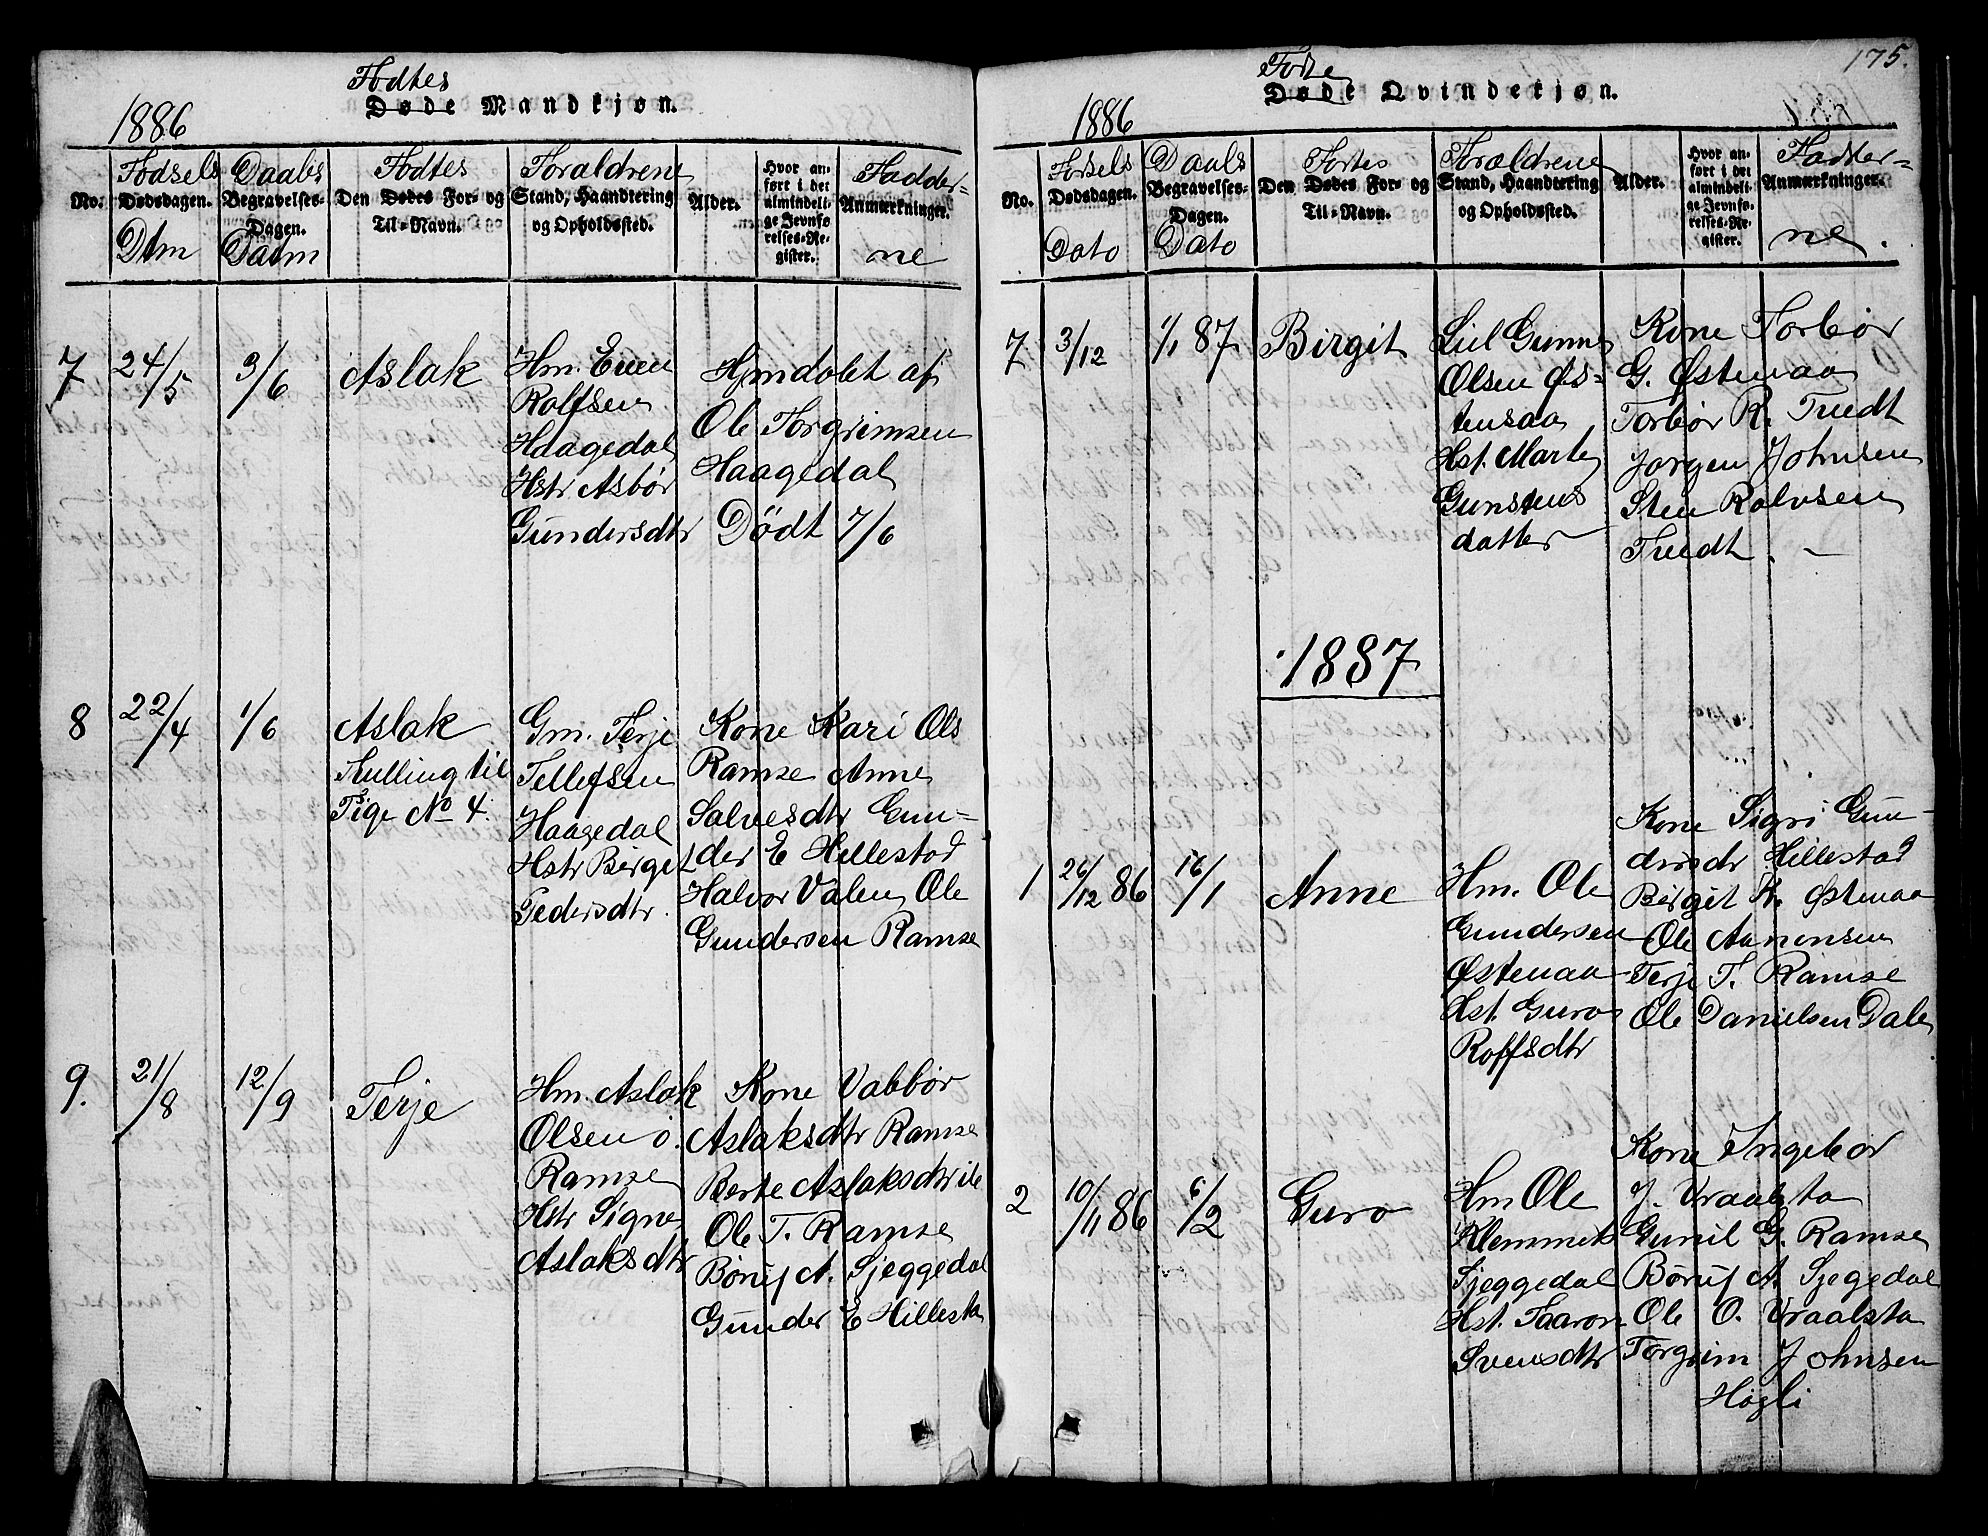 Fødtes
Døde Mandkjøn.
1886
No.
Fødsels
Dødsdagen.
Dtm
Daabs
Begravelses-
Dagen.
Datm
Fødtes
Den Dødes For- og
Til-Navn.
Forældrene
Stand, Haandtering
og Opholdssted.
Alder.
Hvor an-
ført i det
almindeli-
ge Jevnfø-
relses-Re-
gister.
Fadder-
Anmærkninger.
ne
7
24/5
3/6
Aslak
Hm. Even
Rolfsen
Haagedal
Hstr Asbør
Gundersdtr
Hjmdøbt af
Ole Torgrimsen
Haagedal
Dödt 7/6
8
22/4
1/6
Aslak
Tvilling til
Pige No 4.
Gm. Terje
Tellefsen
Haagedal
Hstr Birget
Pedersdtr.
Kone Kari Ols
Ramse Anne
Salvesdtr Gun-
der E Hillestad
Halvor Valen Ole
Gundersen Ramse
9.
21/8
12/9
Terje
Hm. Aslak
Olsen ö.
Ramse
Hstr Signe
Aslaksdtr
Kone Vabbør
Aslaksdtr Ramse
Berte Aslaksdtr ib
Ole T. Ramse
Børuf A. Sjeggedal
Gunder E Hillesta
175.
Døde Qvindekjøn.
1886
No.
Fødsels
Dødsdagen.
Dato
Daabs
Begravelses-
Dagen.
Dato
Den Dødes For- og
Til-Navn.
Forældrene
Stand, Haandtering
og Opholdssted.
Alder.
Hvor an-
ført i det
almindeli-
ge Jevnfø-
relses-Re-
gister.
Fadder-
Anmærkninger.
ne.
7
3/12
1/1 87
Birgit
Gunne
Olsen Øs-
tenaa
Hst. Marte
Gunstens
datter
Kone Torbør
G. Østenaa
Torbør R. Tvedt
Jørgen Johnsen
Sten Rolvsen
Tvedt. -
1887
1
26/12 86
16/1
Anne
Hm. Ole
Gundersen
Østenaa
Hst. Guro
Rolfsdtr
Kone Sigri Gun-
dersdr Hillestad
Birgit K. Østenaa
Ole Aanensen
Terje T. Ramse
Ole Danielsen Dale
2
10/11 86
6/2
Guro
Hm Ole
Klemmets
Sjeggedal
Hst. Taaron
Svensdtr
Kone Ingebor
J. Vraalsta
Gunil G. Ramse
Børuf A. Sjegedal
Ole O. Vraalsta
Torgrim Johnsen
Høgli